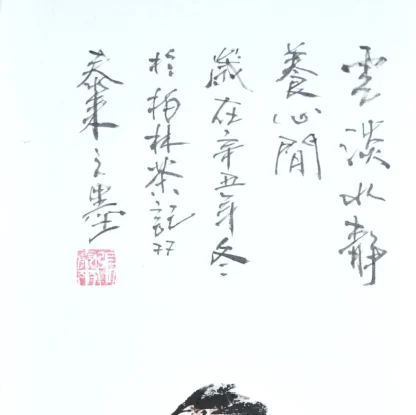 雲淡水靜
養心閒
歲在辛丑年冬
於柏林茶記双
泰来之墨